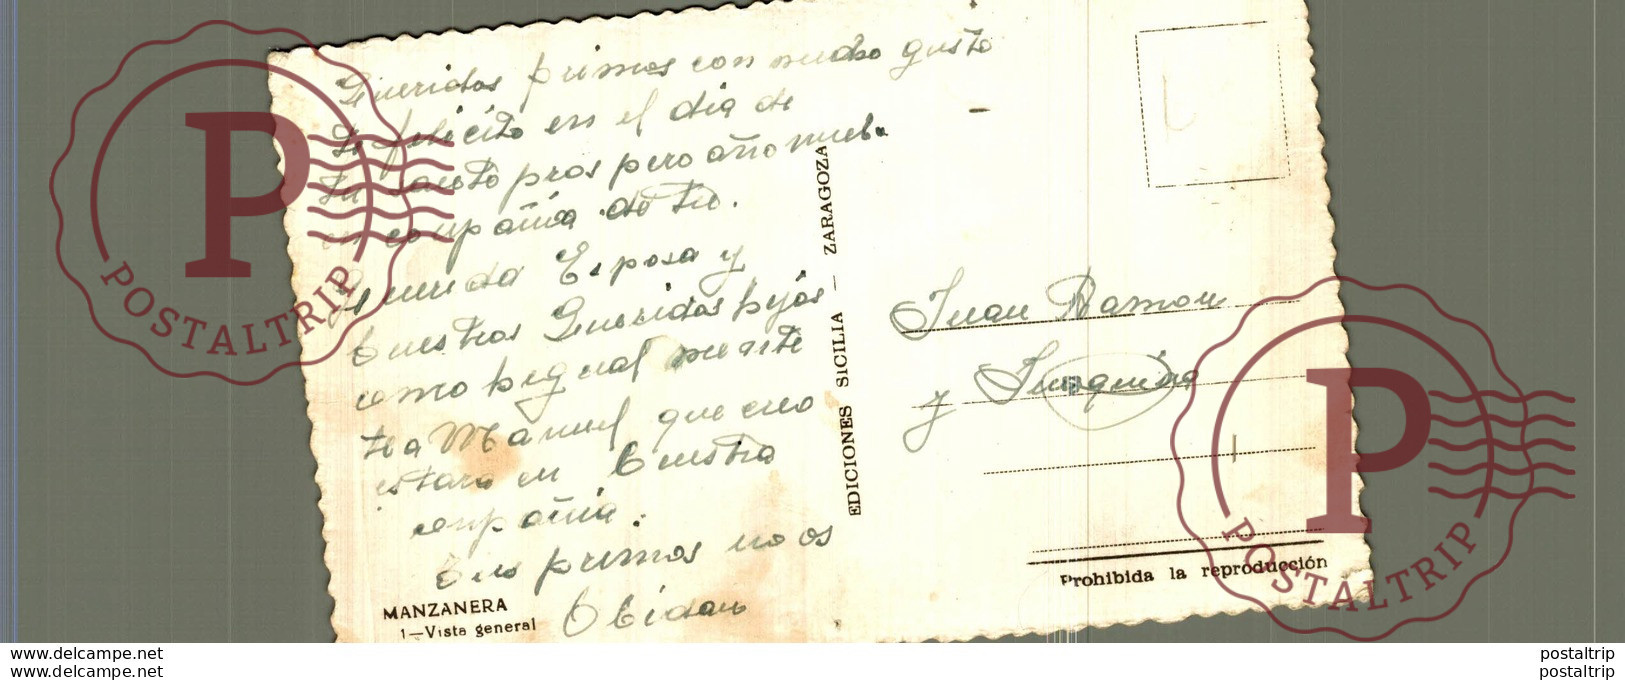 Queridos primos con mucho gusto
te felicito en el dia de
tu santo pros pero año nuebo
en conpañia de tu.
Querida Esposa y
buestros Queridos hijos
como higual mente
ha Manuel que creo
estara en buestra
conpañia.
Tus primos no os
Olvidan
MANZANERA
1—Vista general
EDICIONES SICILIA — ZARAGOZA
Juan Ramon
y Juaquina
Prohibida la reproducción
P
POSTALTRIP
P
POSTALTRIP
www.delcampe.net
www.delcampe.net
postaltrip
postaltrip